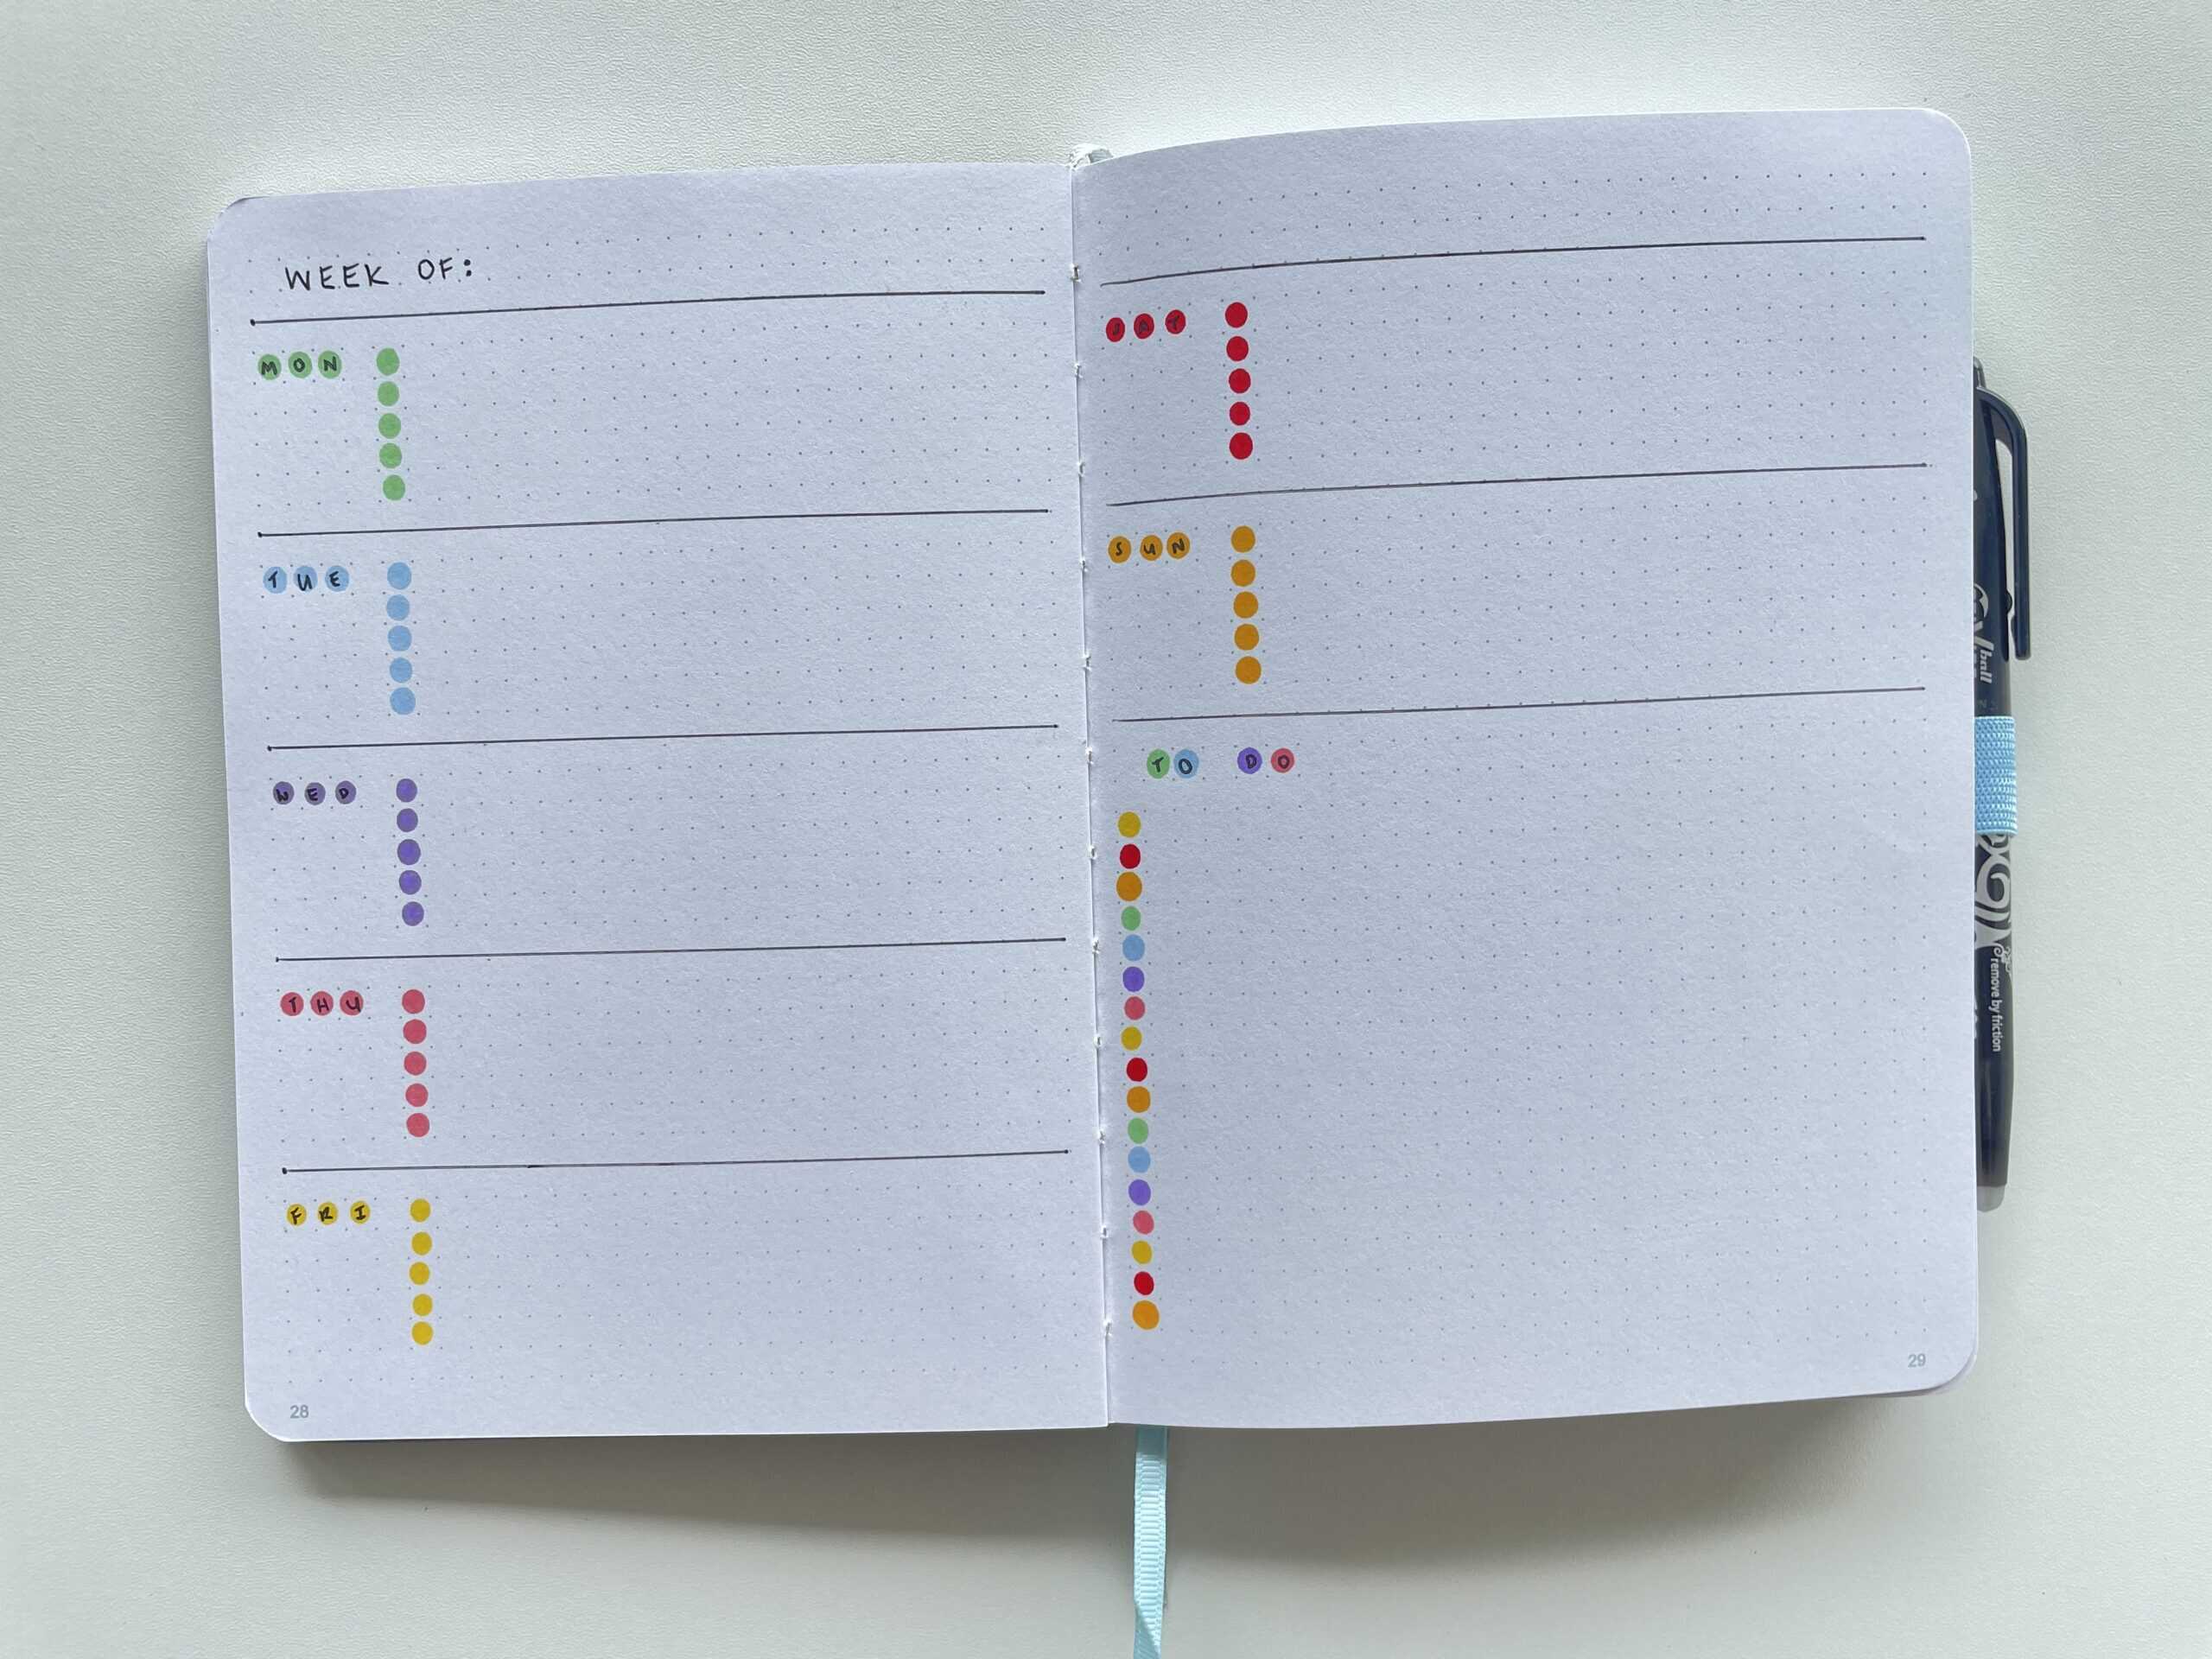 WEEK OF:
MON
TUE
WED
THU
FRI
28
SAT
SUN
TO DO
29
ball
remove by friction